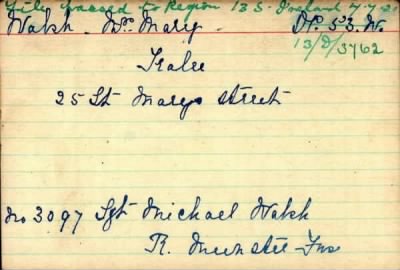 File passed to Region 13 S. Ireland 7.7.21
Walsh. Mrs Mary. DP. 53. W.
13/D/3762
Tralee
25 St Marys Street
No 3097 Sgt Michael Walsh
R. Munster Fus